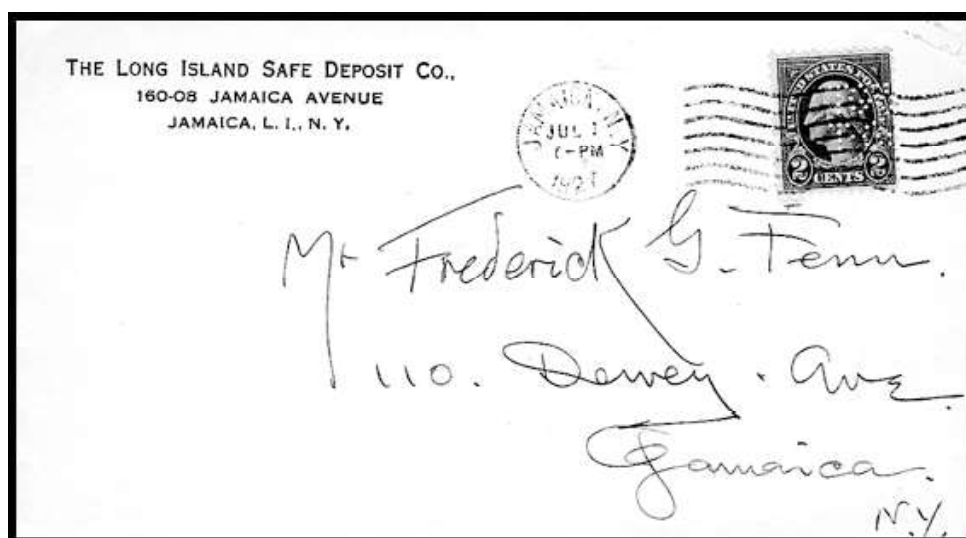 THE LONG ISLAND SAFE DEPOSIT CO.,
160-08 JAMAICA AVENUE
JAMAICA, L. I., N. Y.
JAMAICA, N.Y.
JUL 1
PM
UNITED STATES POSTAGE
2 CENTS 2
Mr Frederick G. Fenn.
110. Dewey. Ave.
Jamaica.
N.Y.